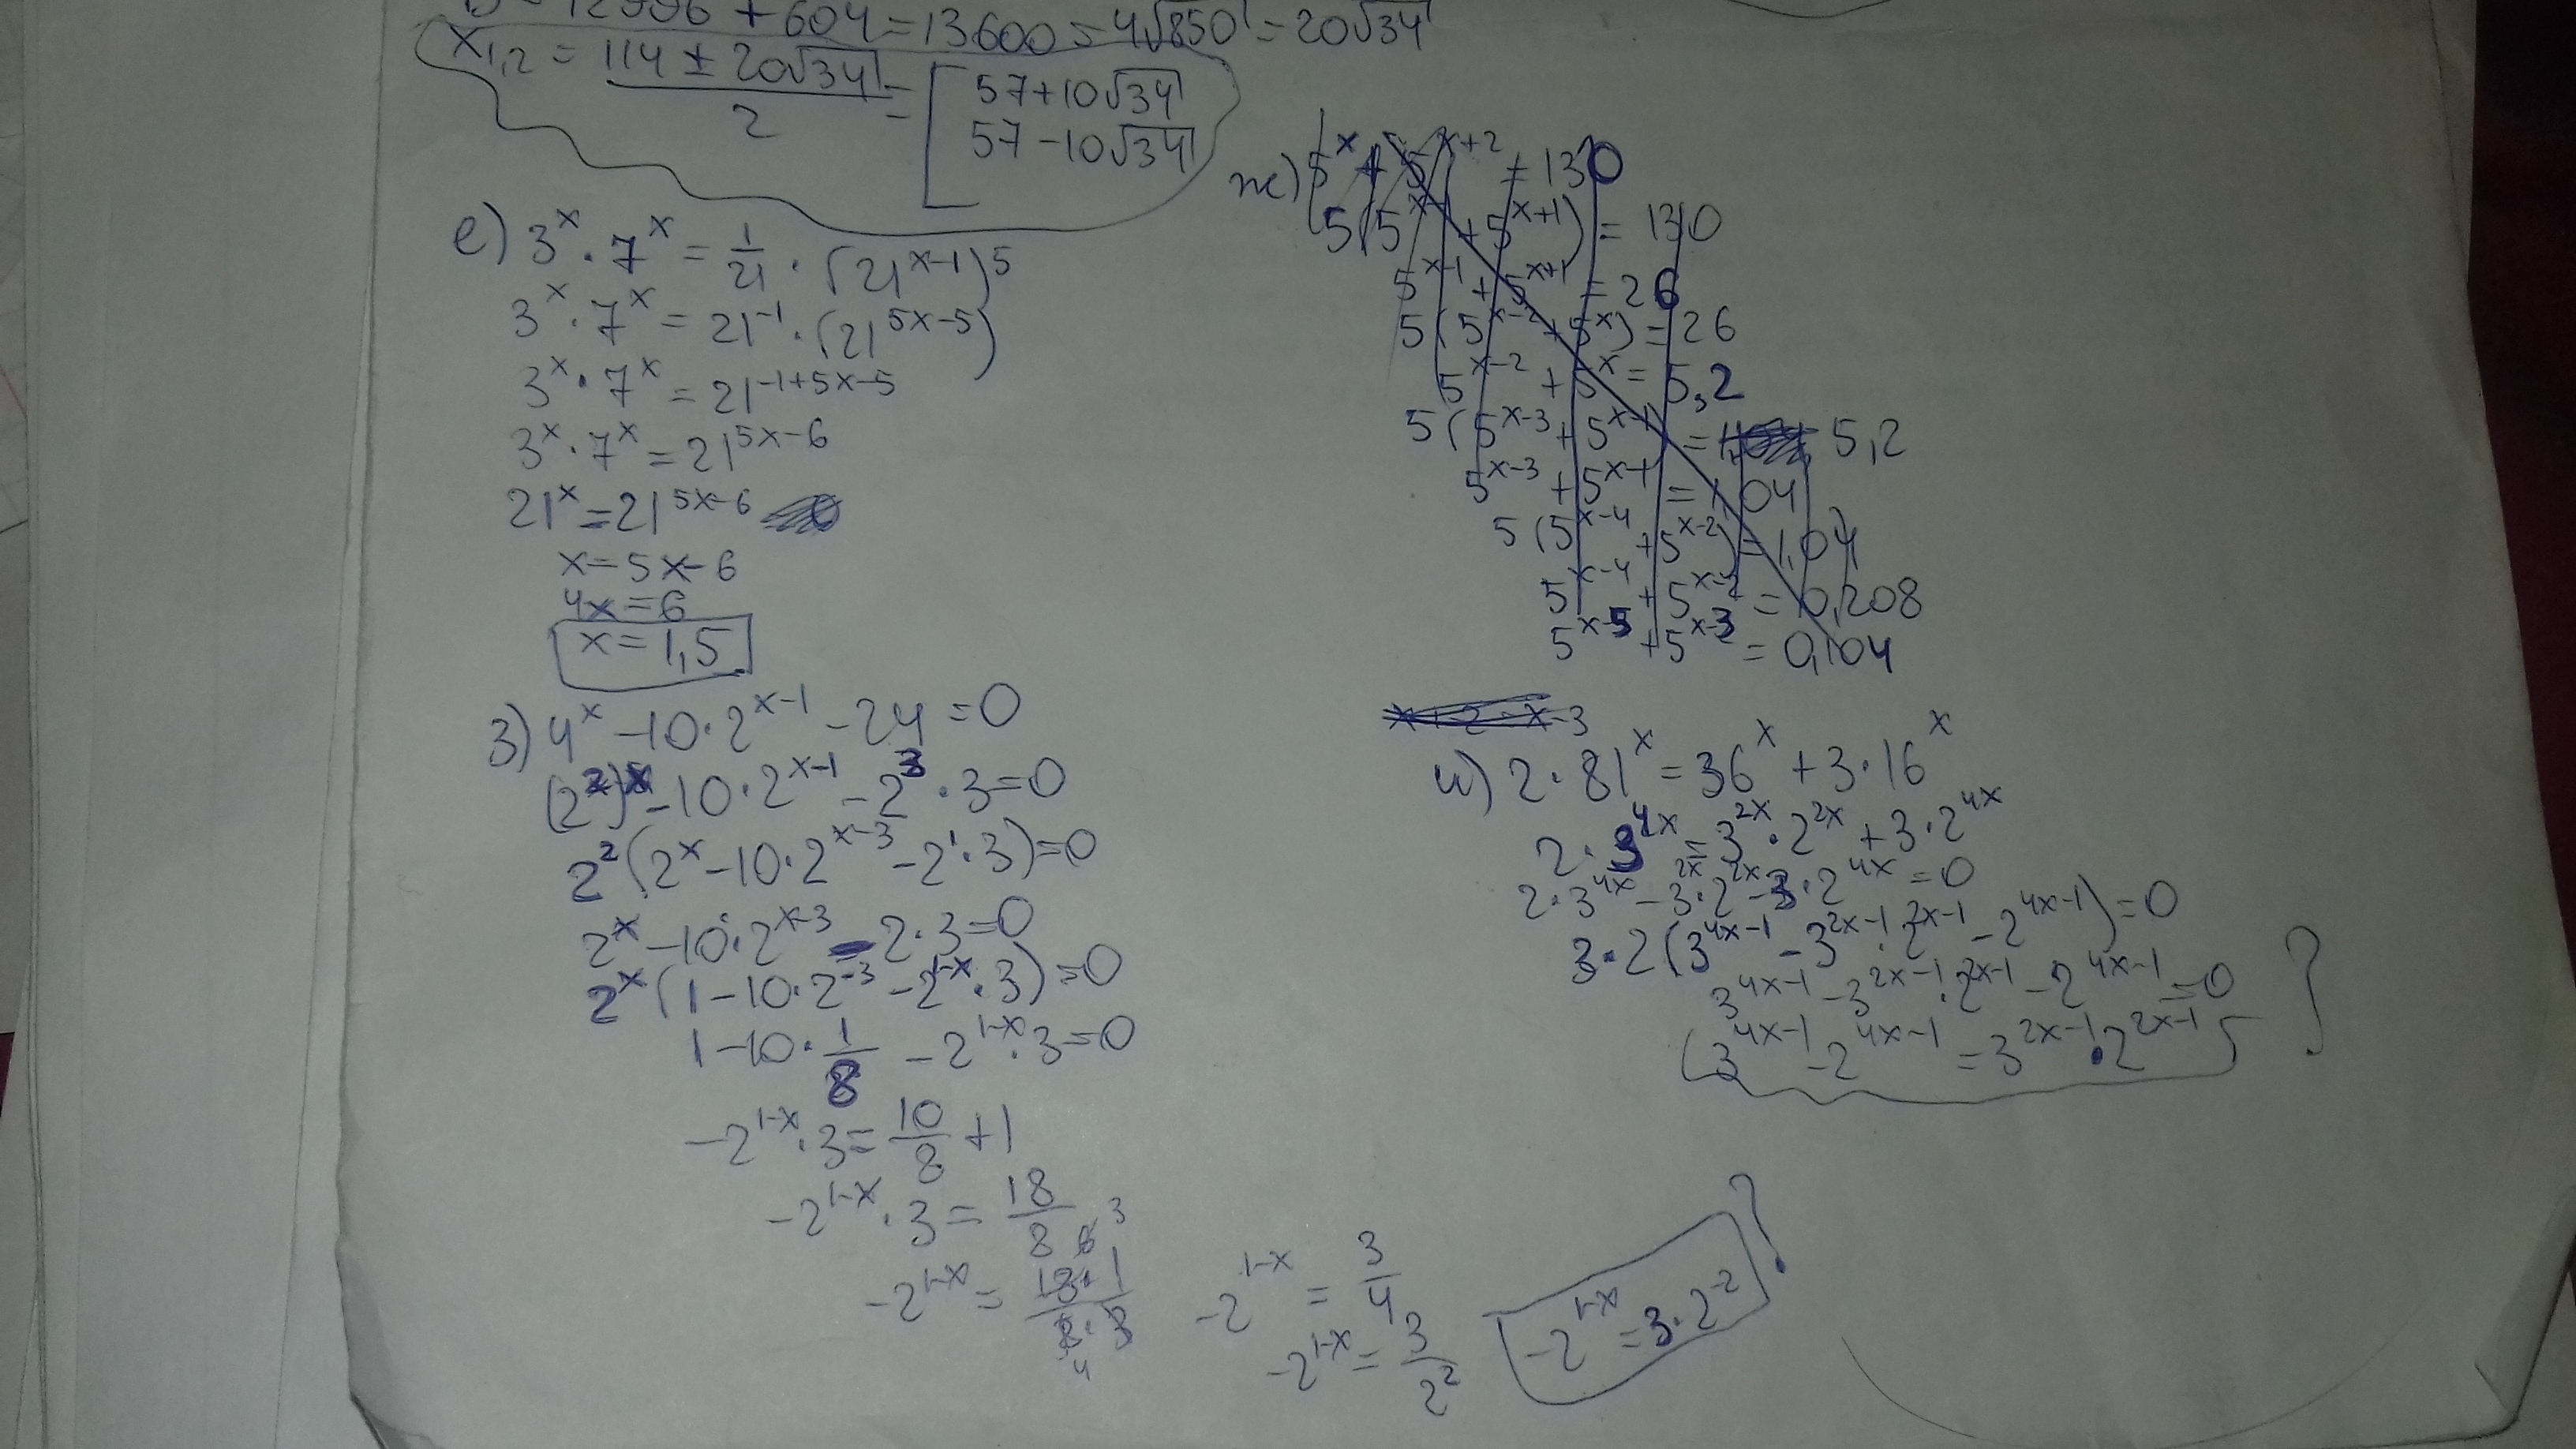 D = 12996 + 604 = 13600 = 4√850 = 20√34
x1,2 = (114 ± 20√34)/2 = [57+10√34
57-10√34
е) 3^x · 7^x = 1/21 · (21^(x-1))^5
3^x · 7^x = 21^(-1) · (21^(5x-5))
3^x · 7^x = 21^(-1+5x-5)
3^x · 7^x = 21^(5x-6)
21^x = 21^(5x-6)
x = 5x-6
4x = 6
x = 1,5
з) 4^x - 10·2^(x-1) - 24 = 0
(2^2)^x - 10·2^(x-1) - 2^3·3 = 0
2^2(2^x - 10·2^(x-3) - 2^1·3) = 0
2^x - 10·2^(x-3) - 2·3 = 0
2^x(1 - 10·2^(-3) - 2^(1-x)·3) = 0
1 - 10·1/8 - 2^(1-x)·3 = 0
-2^(1-x)·3 = 10/8 + 1
-2^(1-x)·3 = 18/8
-2^(1-x) = (18·1)/(8·3)
-2^(1-x) = 3/4
-2^(1-x) = 3/2^2
-2^(1-x) = 3·2^(-2) ?
ж) 5^x + 5^(x+2) = 130
5(5^(x-1) + 5^(x+1)) = 130
5^(x-1) + 5^(x+1) = 26
5(5^(x-2) + 5^x) = 26
5^(x-2) + 5^x = 5,2
5(5^(x-3) + 5^(x-1)) = 5,2
5^(x-3) + 5^(x-1) = 1,04
5(5^(x-4) + 5^(x-2)) = 1,04
5^(x-4) + 5^(x-2) = 0,208
5^(x-5) + 5^(x-3) = 0,104
и) 2·81^x = 36^x + 3·16^x
2·3^(4x) = 3^(2x)·2^(2x) + 3·2^(4x)
2·3^(4x) - 3^(2x)·2^(2x) - 3·2^(4x) = 0
3·2(3^(4x-1) - 3^(2x-1)·2^(2x-1) - 2^(4x-1)) = 0
3^(4x-1) - 3^(2x-1)·2^(2x-1) - 2^(4x-1) = 0
3^(4x-1) - 2^(4x-1) = 3^(2x-1)·2^(2x-1) ?